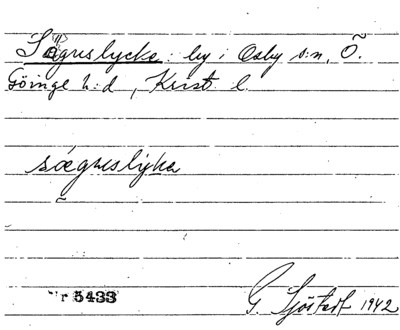 Sågruslycke: by i Osby s:n, Ö.
Göinge h:d, Krist. l.
sǻgruslyka
Nr 5433
G. Sjöstedt 1942